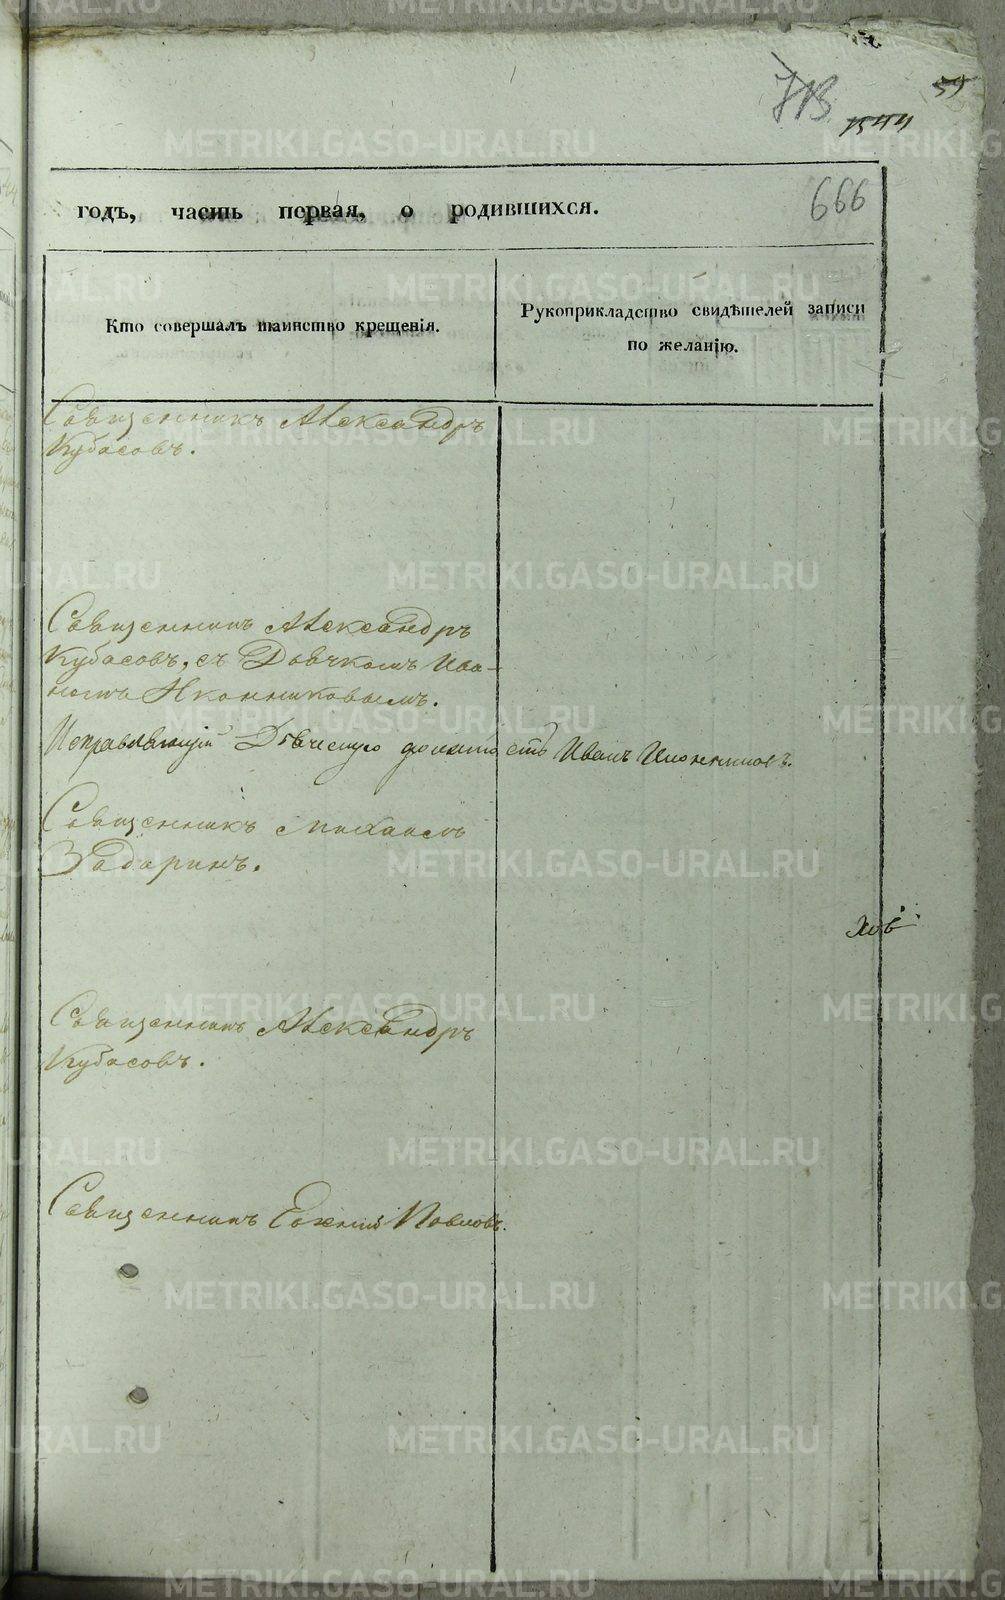 713
59
1544
666
годъ, часть первая, о родившихся.
Кто совершалъ таинство крещенія.
Рукоприкладство свидѣтелей записи
по желанію.
Священникъ Александръ
Кубасовъ.
Священникъ Александръ
Кубасовъ, съ Дьячкомъ Ива-
номъ Иконниковымъ.
Исправляющій Дьяческую должность Иванъ
Священникъ Михаилъ
Задоринъ.
ховъ
Священникъ Александръ
Кубасовъ.
Священникъ Евгений Павловъ.
METRIKI.GASO-URAL.RU